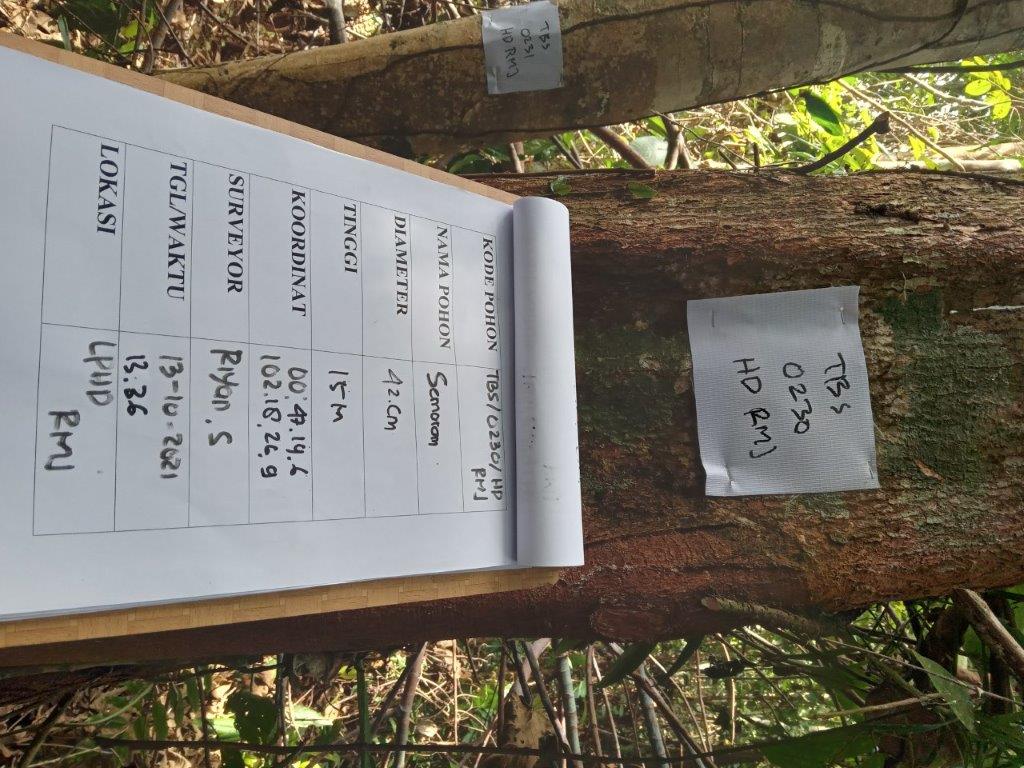 TBS
0230
HD RMJ
TBS
0231
HD RMJ
KODE POHON TBS/0230/HD
RMJ
NAMA POHON Semaram
DIAMETER 42.Cm
TINGGI 15 M
KOORDINAT 00.47.14.6
102.18.26.9
SURVEYOR Riyan.S
TGL/WAKTU 13-10-2021
13.36
LOKASI LPHD
RMJ